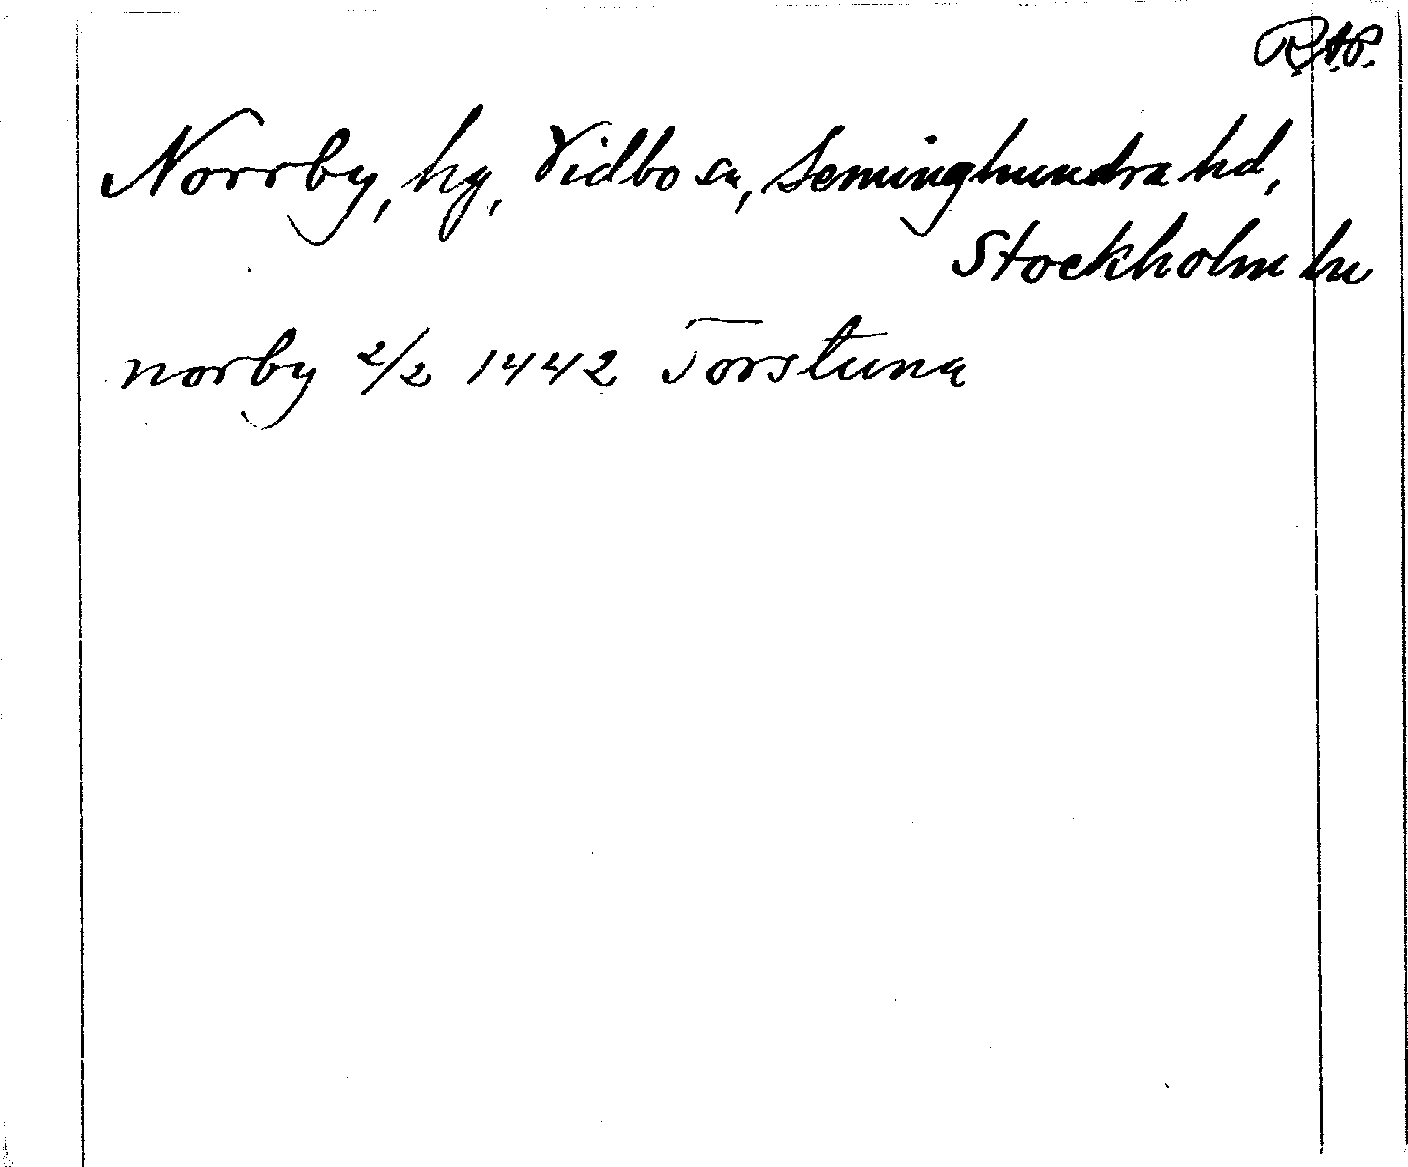 R.A.P.
Norrby, hg, Vidbo sn, Seminghundra hd,
Stockholm ln
norby 2/2 1442 Torstuna